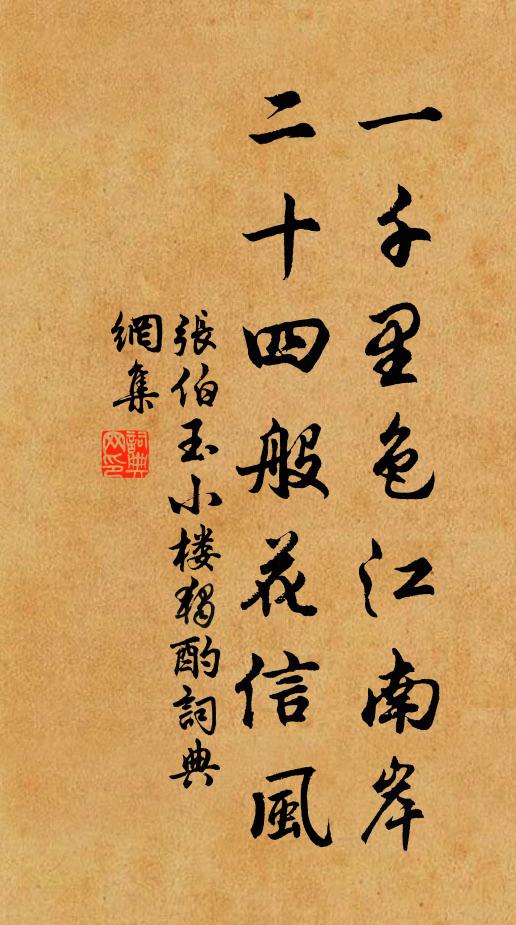 一千里色江南岸
二十四般花信風
張伯玉小楼獨酌詞典
網集
詞典
网印